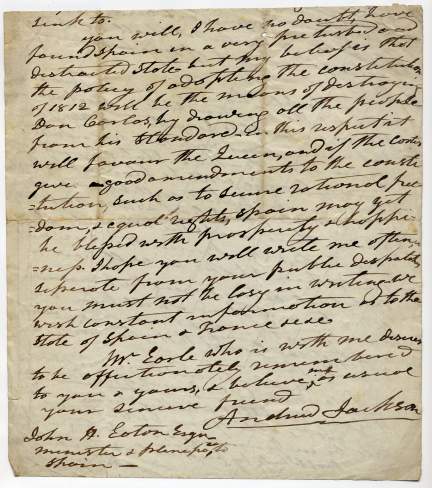 sink to.
you will, I have no doubt, have
found Spain in a very perturbed and
distracted state but my belief is that
the policy of adopting the constitution
of 1812 will be the means of destroying
Don Carlos, by drawing all the people
from his standard. in this respect it
will favour the Queen, and if the cortes
give good amendments to the consti
=tution, such as to secure rational free
=dom, & equal rights, Spain may yet
be blessed with prosperity & happi
=ness. I hope you will write me often,
seperate from your public despatch
you must not be lazy in writing. we
wish constant information as to the
state of Spain & France &c &c.
Mr. Earle who is with me desires
to be affectionately remembered
to you & yours, & believe me as usual
your sincere friend
Andrew Jackson
John H. Eaton Esqr
minister & to
Spain —